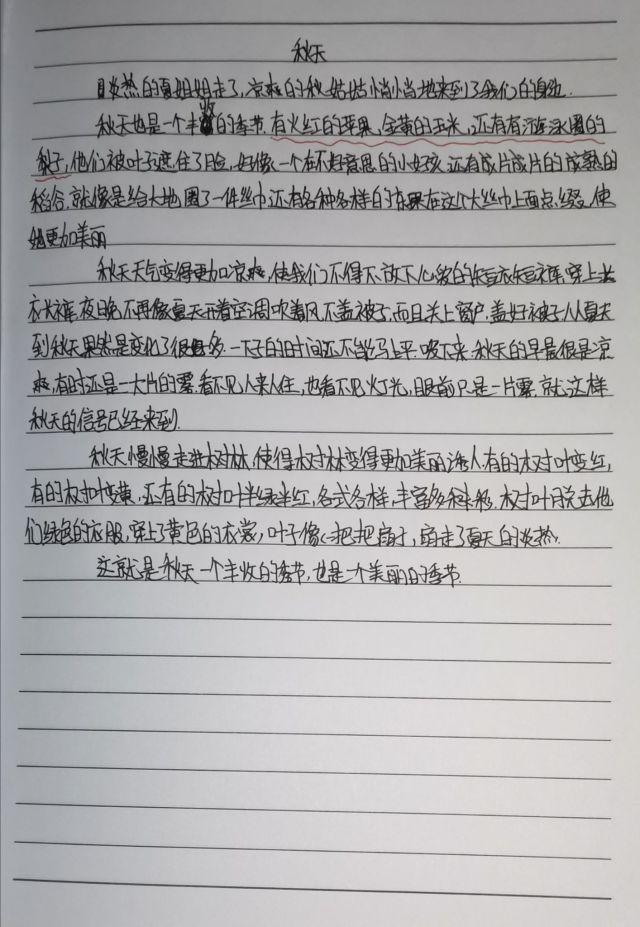 秋天
炎热的夏姐姐走了,凉爽的秋姑姑悄悄地来到了我们的身边.
秋天也是一个丰收的季节.有火红的苹果,金黄的玉米,还有有
梨子,他们被叶子遮住了脸,好像一个个不好意思的小女孩.还有成片成片的成熟的
稻谷.就像是给大地围了一件丝巾,还有各种各样的在这个大丝巾上面点缀,使
她更加美丽
秋天天气变得更加凉爽,使我们不得不放下心爱的短衣短裤.穿上长
衣长裤.夜晚不再像夏天开着空调吹着风,不盖被子,而且关上窗户.盖好被子.从夏天
到秋天果然是变化了很多.一下子的时间还不能马上平下来.秋天的早晨很是凉
爽,有时还是一大片的雾.看不见人来人往,也看不见灯光,眼前只是一片雾.就这样
秋天的信号已经来到.
秋天慢慢走进树林,使得树林变得更加美丽诱人.有的树叶变红,
有的树叶变黄,还有的树叶半绿半红,各式各样,丰富多彩,树叶脱去他
们绿色的衣服,穿上了黄色的衣裳,叶子像一把把扇子,扇走了夏天的炎热.
这就是秋天一个丰收的季节,也是一个美丽的季节.